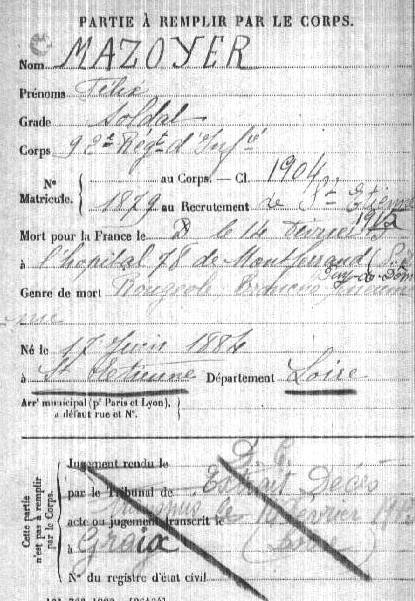 PARTIE À REMPLIR PAR LE CORPS.
Nom MAZOYER
Prénoms Félix
Grade Soldat
Corps 92e Régt d'Infie
No Matricule. { au Corps. — Cl. 1904
1879 au Recrutement de St Etienne
Mort pour la France le le 14 février 1915
à l'hopital 78 de Montferrand (Puy-de-Dôme
Genre de mort Rougeole
Né le 17 Juin 1884
à St Etienne Département Loire
Arrt municipal (pr Paris et Lyon), }
à défaut rue et No. }
Cette partie n'est pas à remplir par le Corps.
Jugement rendu le D. C.
par le Tribunal de Extrait Décès
acte ou jugement transcrit le février
à Graix (Loire)
No du registre d'état civil